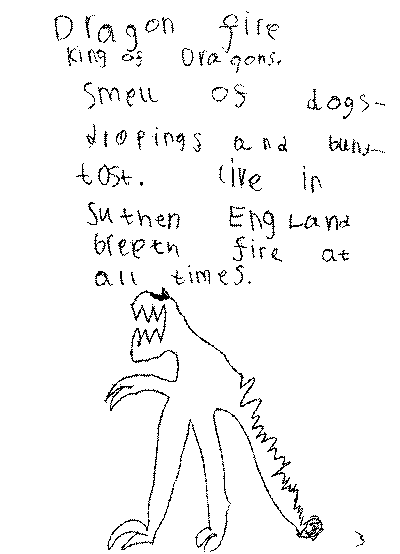 Dragon fire
King of Dragons.
Smell of dogs-
dropings and burnt-
tost. Live in
Suthen England
brepth fire at
all times.
3